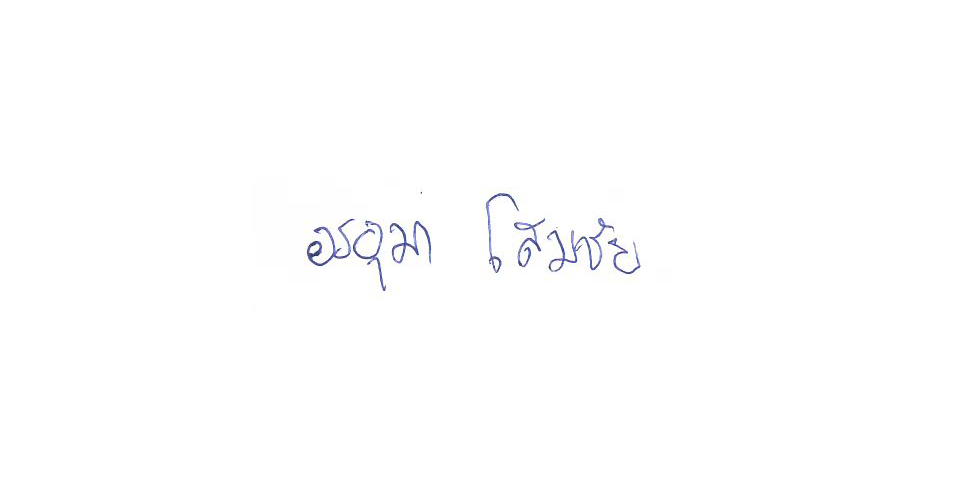 อรอุมา โสมชัย